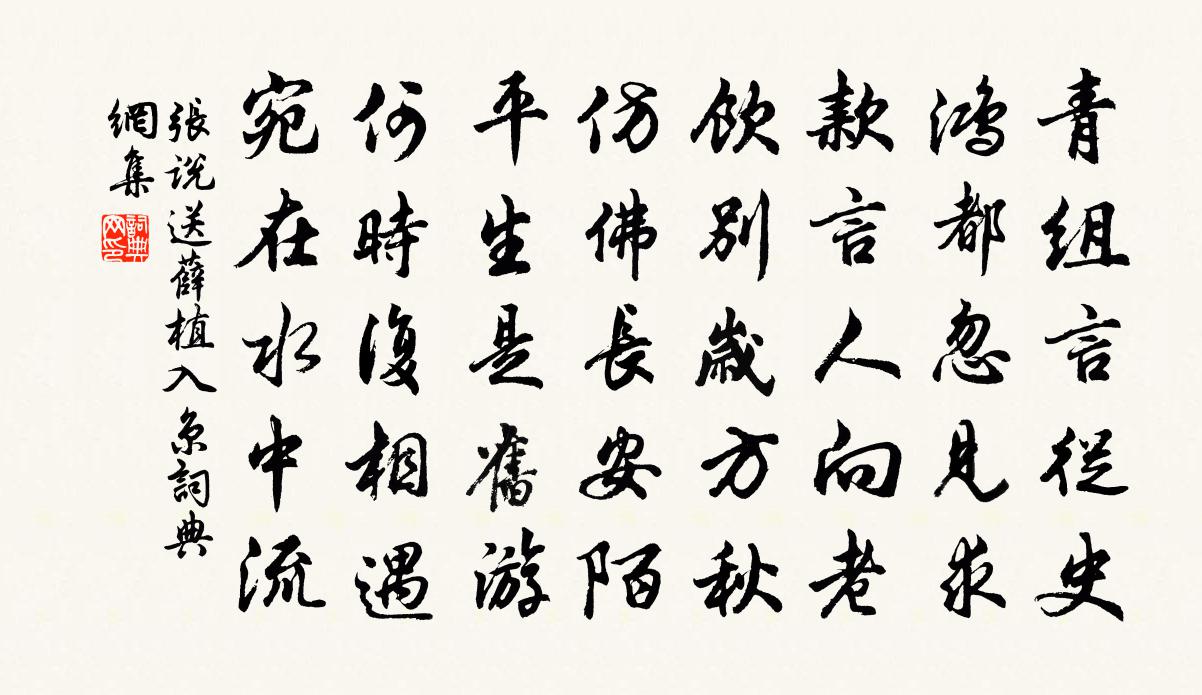 青組言從史
鴻都忽見求
款言人向老
飲別歲方秋
仿佛長安陌
平生是舊游
何時復相遇
宛在水中流
張說送薛植入京詞典
網集
詞典
网印